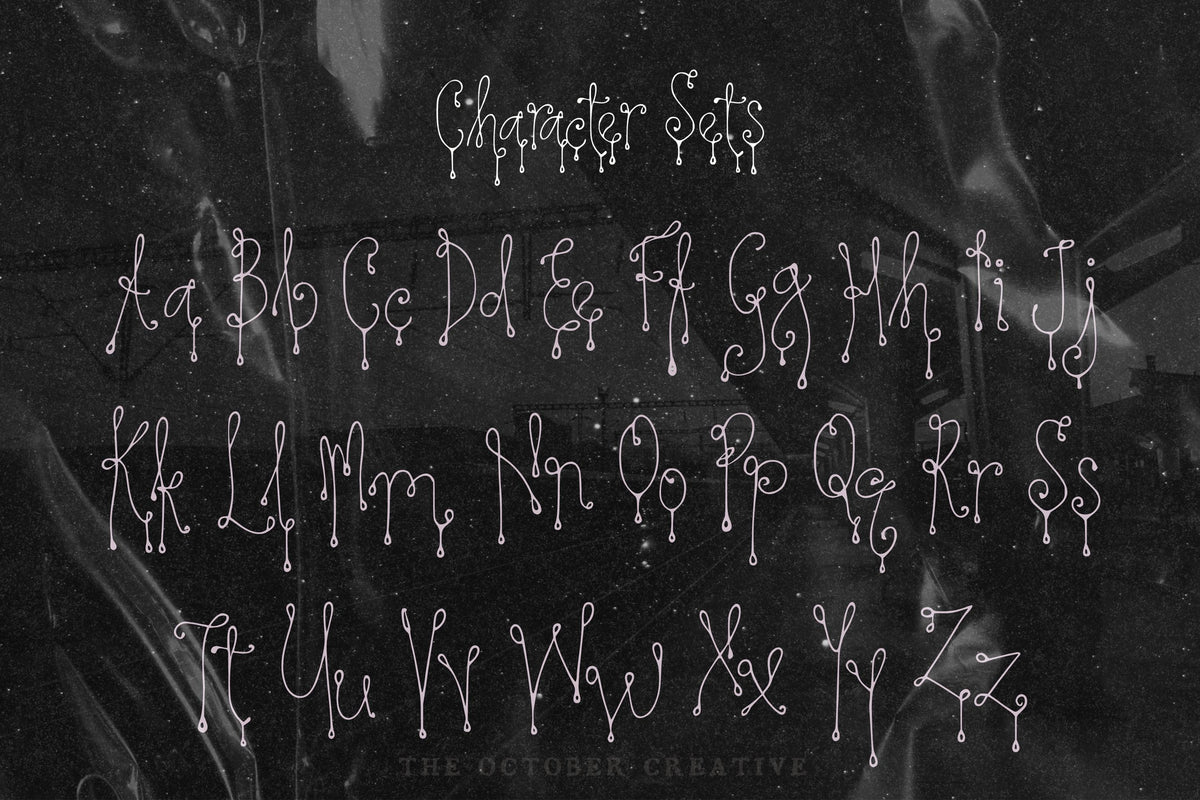 Character Sets
Aa Bb Cc Dd Ee Ff Gg Hh Ii Jj
Kk Ll Mm Nn Oo Pp Qq Rr Ss
Tt Uu Vv Ww Xx Yy Zz
THE OCTOBER CREATIVE